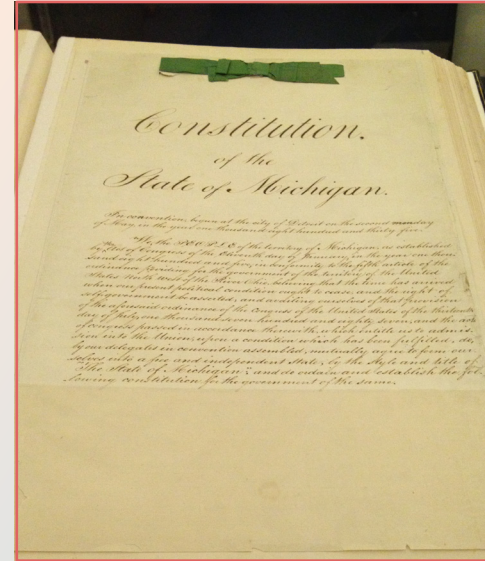 Constitution.
of the
State of Michigan.
In convention, begun at the city of Detroit on the second monday
of May, in the year one thousand eight hundred and thirty five:
We, the PEOPLE of the territory of Michigan, as established
by Act of Congress of the Eleventh day of January, in the year one thou-
sand eight hundred and five, in conformity to the fifth article of the
ordinance providing for the government of the territory of the United
States North West of the River Ohio, believing that the time has arrived
when our present political condition ought to cease, and the right of
self-government be asserted; and availing ourselves of that provision
of the aforesaid ordinance of the Congress of the United States of the thirteenth
day of July, one thousand seven hundred and eighty seven, and the acts
of congress passed in accordance therewith, which entitle us to admis-
sion into the Union, upon a condition which has been fulfilled, do,
by our delegates in convention assembled, mutually agree to form our-
selves into a free and independent state, by the style and title of
"The State of Michigan"; and do ordain and establish the fol-
lowing constitution for the government of the same.